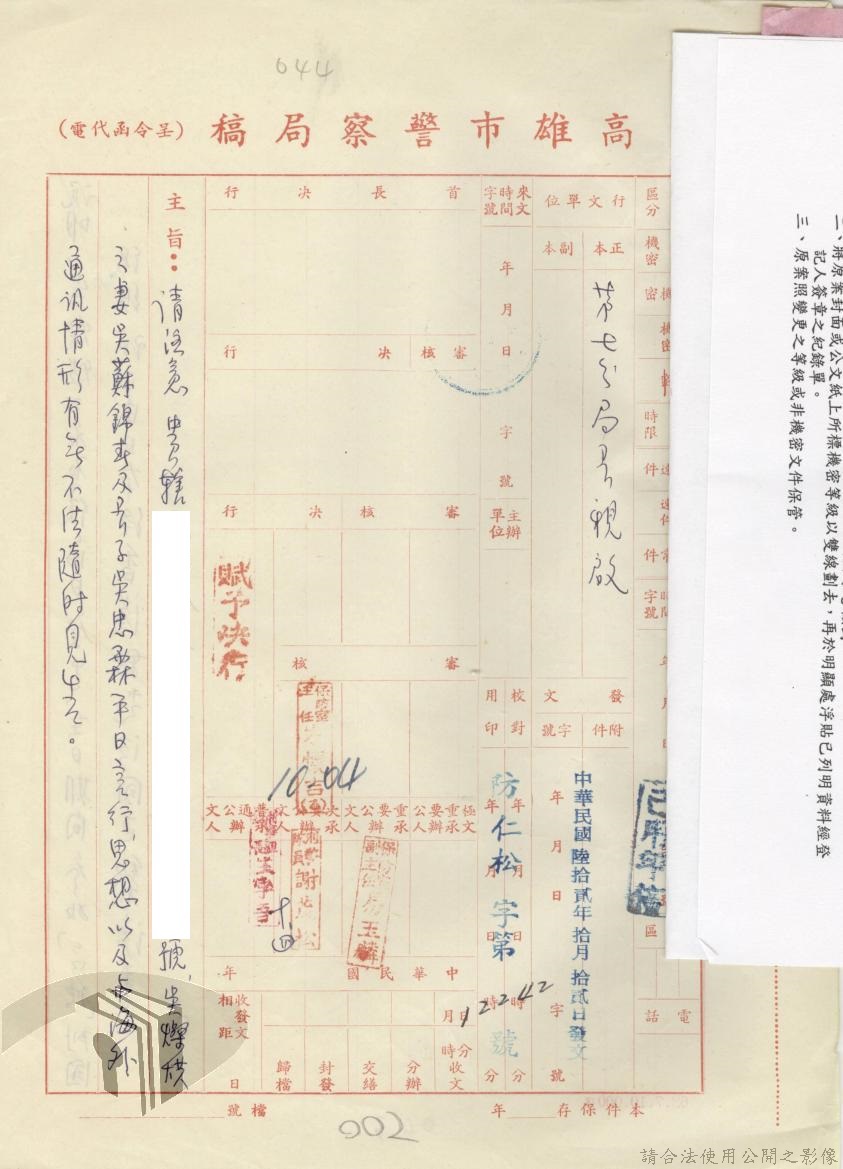 044
高雄市警察局稿(呈令函代電)
區分
機密
時限
電話
行文單位
正本
副本
第七分局長親啟
發文
附件
字號
中華民國陸拾貳年拾月拾貳日發文
年月日
字
號
來文
時間
字號
年
月
日
字
號
主辦
單位
校對
用印
防仁松字第12242號
首長決行
審核決行
審核決行
賦予決行
審核
10-04
極重要公文承辦人
重要公文承辦人
次要公文承辦人
普通公文承辦人
易玉麟
中華民國年
月
日
時
分
收文
分辦
交繕
封發
歸檔
收發文相距
日
主旨：請注意 貴轄
號，吳燦棋
之妻吳蘇錦春及長子吳忠霖平日言行、思想以及與海外
通訊情形有無不法隨時見告。
本件保存 年
檔號
002
二、將原案封面或公文紙上所標機密等級以雙線劃去，再於明顯處浮貼已列明資料經登
記人簽章之紀錄單。
三、原案照變更之等級或非機密文件保管。
請合法使用公開之影像